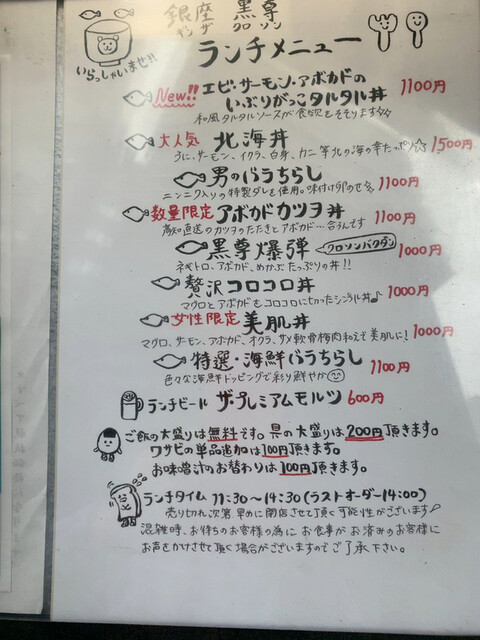 銀座 黒尊
ギンザ クロソン
いらっしゃいませ!!
ランチメニュー
New!! エビ・サーモン・アボカドの
いぶりがっこタルタル丼 1100円
和風タルタルソースが食欲をそそります
大人気 北海丼 1500円
うに、サーモン、イクラ、白身、カニ等北の海の幸たっぷり☆
男のバラちらし 1100円
ニンニク入りの特製ダレを使用。味付け卵のせ
数量限定 アボカドカツヲ丼 1100円
高知直送のカツヲのたたきとアボカド…合うんです
黒尊爆弾 クロソンバクダン 1000円
ネギトロ、アボカド、めかぶたっぷりの丼!!
贅沢コロコロ丼 1000円
マグロとアボカドをコロコロに切ったシンプル丼♪
女性限定 美肌丼 1000円
マグロ、サーモン、アボカド、オクラ、サメ軟骨梅肉和えで美肌に!
特選・海鮮バラちらし 1100円
色々な海鮮トッピングで彩り鮮やか
ランチビール ザ・プレミアムモルツ 600円
ご飯の大盛りは無料です。具の大盛りは200円頂きます。
ワサビの単品追加は100円頂きます。
お味噌汁のお替わりは100円頂きます。
ランチタイム 11:30〜14:30(ラストオーダー14:00)
売り切れ次第早めに閉店させて頂く可能性がございます
混雑時、お待ちのお客様の為にお食事がお済みのお客様に
お声をかけさせて頂く場合がございますのでご了承下さい。